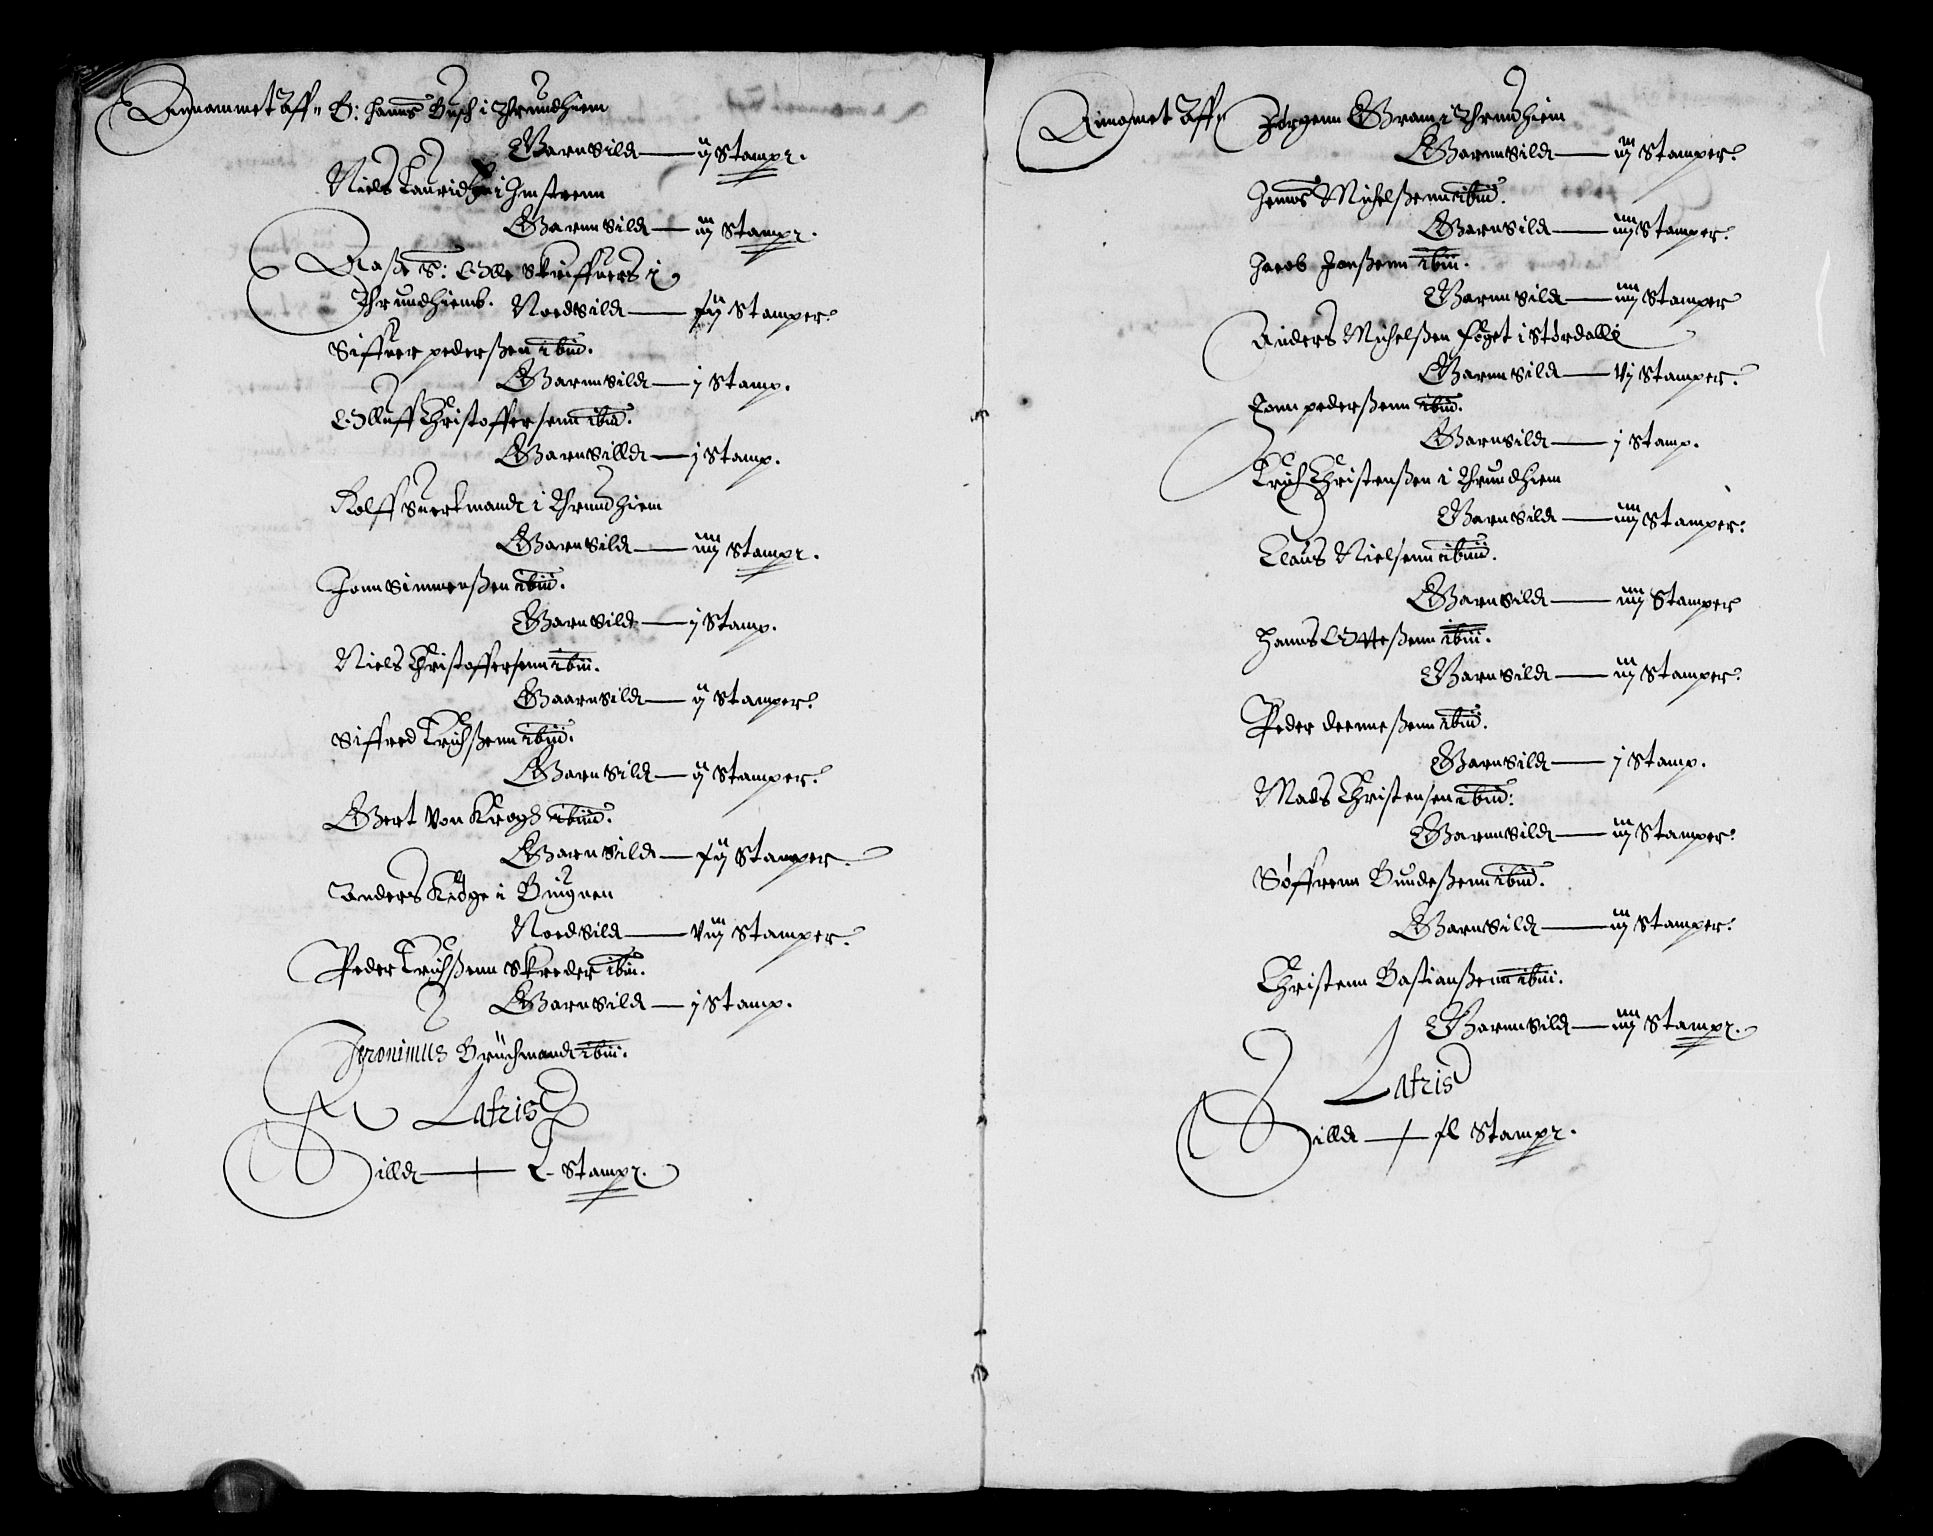 Annammet aff B: Hanns Busch i Thrundhiem
Gaarn Sildt — ij Stampr.
Niels Lauridtz i Innstrenn
Gaarnn Sildt — iij Stampr.
Olle Skriffuers i
Thrundhiemb. Noed Sildt — xij Stamper.
Siffuer pederßen ibid.
Gaarnn Sildt — j Stamp.
Olluff Christoffersenn ibid.
Gaarn Silldt — j Stamp.
Rolff Suerkmandt i Thrundhiem
Gaarn Sildt — iiij Stampr.
Jonn Simmenßen ibid.
Gaarn Sildt — j Stamp.
Niels Christoffersenn ibid.
Gaarn Sildt — ij Stamper.
Siffred Erichßenn ibid.
Gaarn Sildt — ij Stamper.
Giert von Krogh ibid.
Gaarn Sildt — xij Stamper.
Anders Kiøge i
Noed Sild — viij Stamper.
Peder Erichßenn Skreder ibid.
Gaarn Sildt — j Stamp.
Jeronimus Bruchmandt ibid.
Latris
Silldt — L Stampr.
Annamet Aff Jørgenn Gram i Thrundhiem
Gaarnn Sildt — iij Stamper.
Jenns Michelßenn ibid.
Gaarn Sildt — iiij Stamper.
Jacob Jenßenn ibid.
Gaarnn Sildt — iiij Stamper
Anders Michelßen foget i Størdalle
Gaarnn Sildt — vj Stamper.
Jonn pederßenn ibid.
Gaarn Sildt — j Stamp.
Erich Christenßen i Thrundhiem
Gaarn Sildt — iiij Stamper.
Claus Nielsenn ibid.
Gaarn Sildt — iiij Stamper
Hanns Otteßenn ibid.
Gaarn Sildt — iij Stamper.
Peder ibid.
Gaarn Sildt — j Stamp.
Mads Christensen ibid:
Gaarnn Sildt — iij Stamper.
Søffrenn Bundeßenn ibid.
Gaarn Sildt — iij Stamper.
Christenn Bastianßenn ibid.
Gaarnn Sildt — iiij Stampr.
Latris
Silldt — xl Stampr.